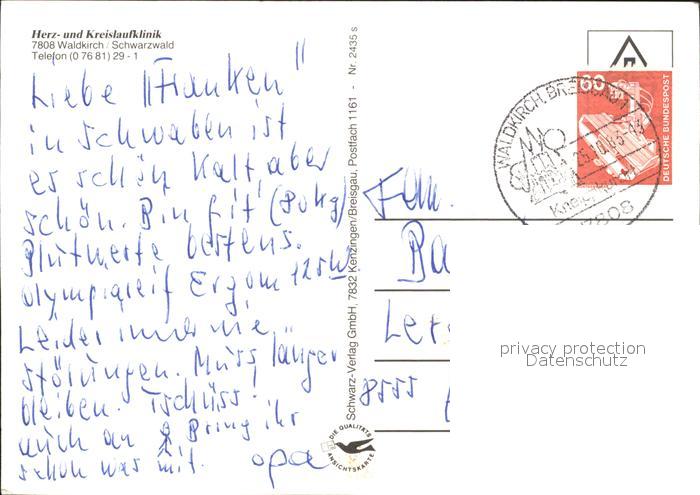 Herz- und Kreislaufklinik
7808 Waldkirch / Schwarzwald
Telefon (0 76 81) 29 - 1
Liebe "Franken"
in Schwaben ist
es schön kalt, aber
schön. Bin fit (80kg)
Blutwerte bestens.
Olympiareif Ergom 125W
Leider immer
störungen. Muss länger
bleiben. Tschüss!
auch an Bring ihr
schon was mit. opa
Schwarz-Verlag GmbH, 7832 Kenzingen/Breisgau, Postfach 1161 - Nr. 2435 s
DIE QUALITÄTS
ANSICHTSKARTE
60
DEUTSCHE BUNDESPOST
WALDKIRCH, BREISGAU 1
7808
Fam.
Ba
8555
privacy protection
Datenschutz